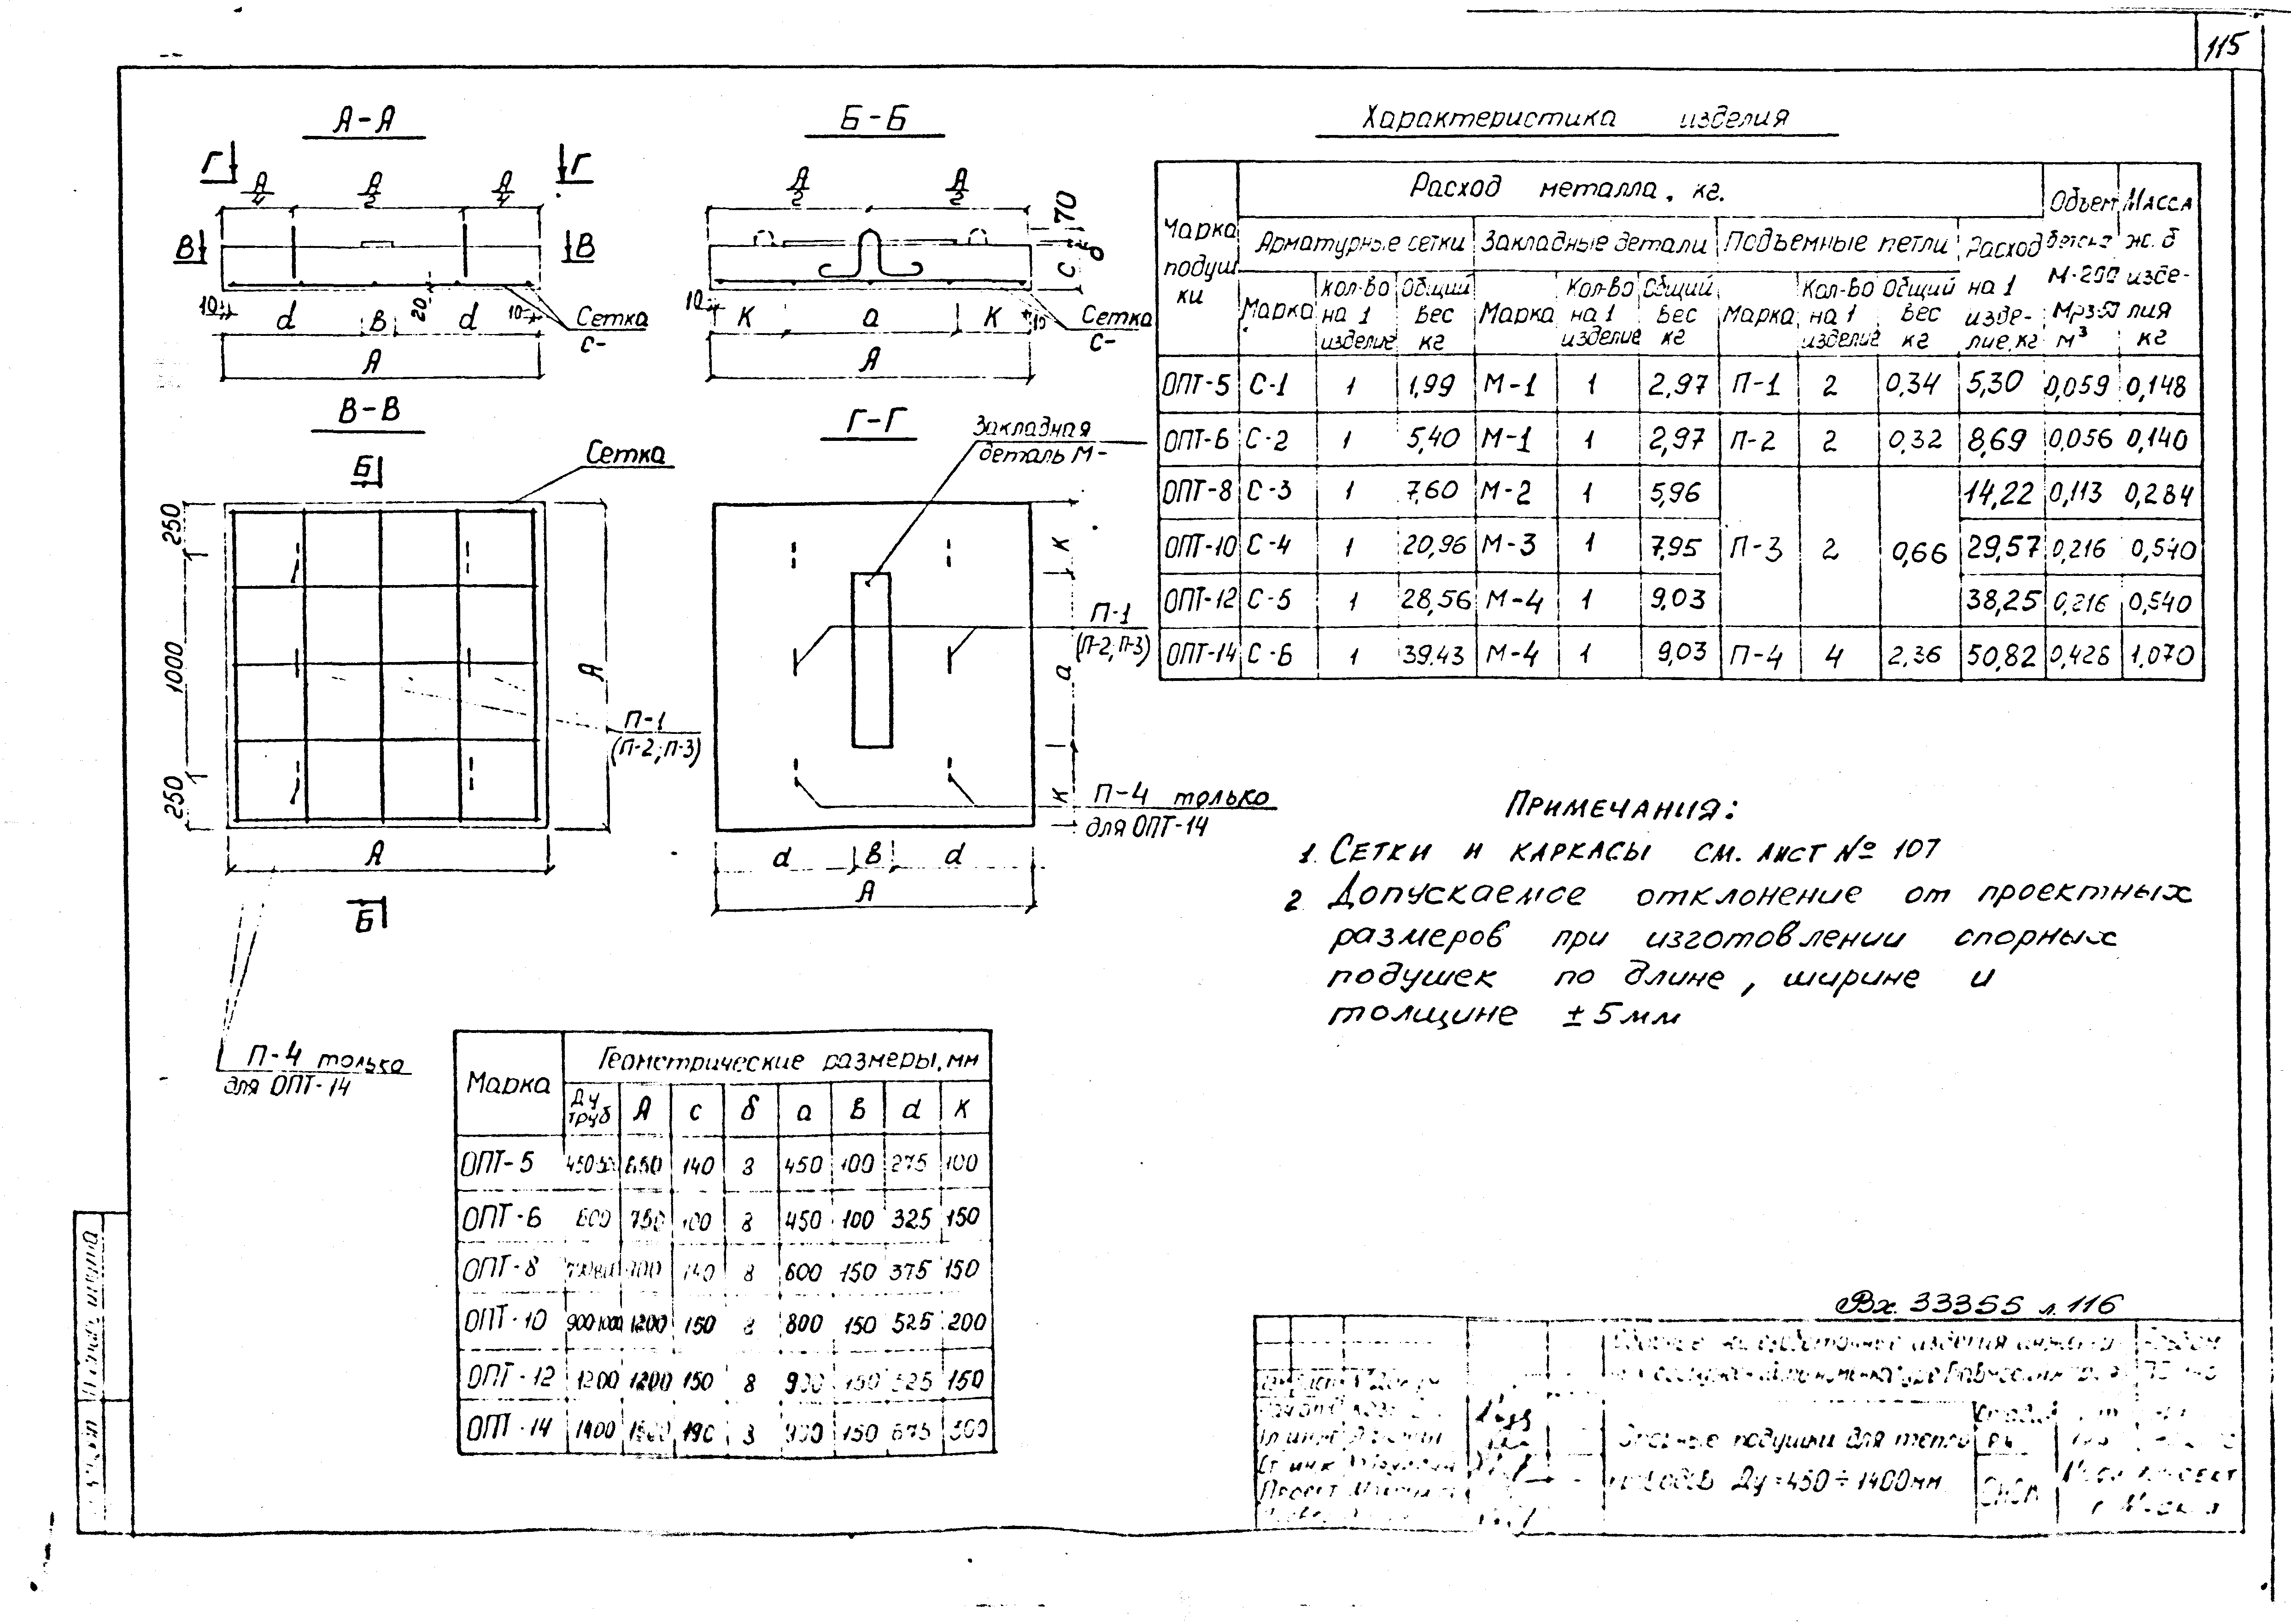 115
А-А
Г Г
А/4 А/2 А/4
В В
10 d в 20 d 10
Сетка
С-
А
Б-Б
А/2 А/2
70
δ
с
10 К а К 10
Сетка
С-
А
В-В
Б
Сетка
250
1000
250
А
П-1
(П-2; П-3)
А
Б
П-4 только
для ОПТ-14
Г-Г
Закладная
деталь М-
К
а
К
П-1
(П-2; П-3)
П-4 только
для ОПТ-14
d в d
А
Характеристика изделия
Марка подушки
Расход металла, кг.
Объем бетона М-200 Мрз50 м³
Масса ж.б изделия кг
Арматурные сетки Закладные детали Подъемные петли Расход на 1 изделие, кг
Марка Кол-во на 1 изделие Общий вес кг Марка Кол-во на 1 изделие Общий вес кг Марка Кол-во на 1 изделие Общий вес кг
ОПТ-5 С-1 1 1,99 М-1 1 2,97 П-1 2 0,34 5,30 0,059 0,148
ОПТ-6 С-2 1 5,40 М-1 1 2,97 П-2 2 0,32 8,69 0,056 0,140
ОПТ-8 С-3 1 7,60 М-2 1 5,96 14,22 0,113 0,284
ОПТ-10 С-4 1 20,96 М-3 1 7,95 П-3 2 0,66 29,57 0,216 0,540
ОПТ-12 С-5 1 28,56 М-4 1 9,03 38,25 0,216 0,540
ОПТ-14 С-6 1 39.43 М-4 1 9,03 П-4 4 2,36 50,82 0,428 1,070
Примечания:
1. Сетки и каркасы см. лист № 107
2 Допускаемое отклонение от проектных
размеров при изготовлении опорных
подушек по длине, ширине и
толщине ± 5 мм
Марка Геометрические размеры, мм
Ду труб А с δ а в d К
ОПТ-5 650 140 8 450 100 275 100
ОПТ-6 600 750 100 8 450 100 325 150
ОПТ-8 140 8 600 150 375 150
ОПТ-10 900 1000 1200 150 8 800 150 525 200
ОПТ-12 1200 1200 150 8 900 150 525 150
ОПТ-14 1400 190 8 900 150 675 300
Вх. 33355 л. 116
изделия
Опорные подушки для тепло
Ду=450÷1400мм